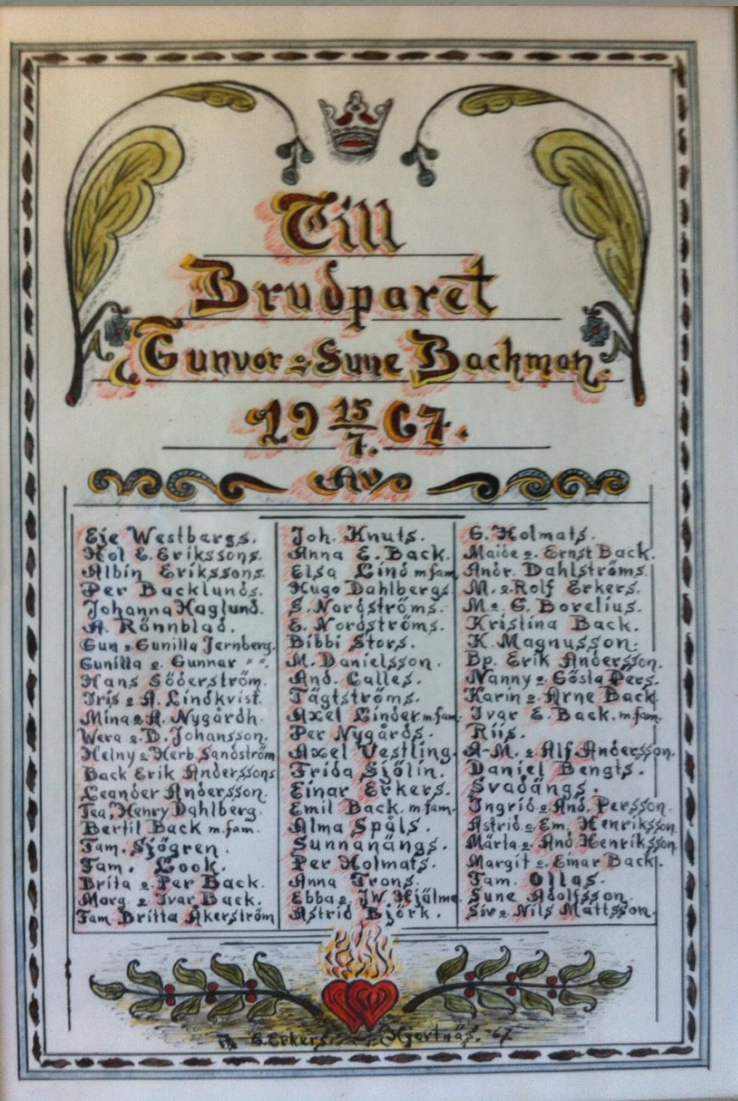 Till
Brudparet
Gunvor o Sune Backman.
19 15/7. 67.
Av
Eje Westbergs.
Hol E. Erikssons.
Albin Erikssons.
Per Backlunds.
Johanna Haglund.
A. Rönnblad.
Gun o Gunilla Jernberg.
Gunilla o. Gunnar " ".
Hans Söderström.
Iris o A. Lindkvist.
Mina o A. Nygårdh.
Wera o D. Johansson.
Helny o Herb. Sandström
Back Erik Anderssons
Leander Andersson.
Tea, Henry Dahlberg.
Bertil Back m.fam.
Fam. Sjögren.
Fam. Look.
Brita o Per Back.
Marg. o Ivar Back.
Fam Britta Åkerström
Joh. Knuts.
Anna E. Back.
Elsa Lind m fam.
Hugo Dahlbergs
S. Nordströms.
E. Nordströms.
Bibbi Stors.
M. Danielsson.
And. Calles.
Tägtströms.
Axel Linder m fam.
Per Nygårds.
Axel Vestling.
Frida Sjölin.
Einar Erkers.
Emil Back m fam.
Alma Spåls.
Sunnanängs.
Per Holmats.
Anna Trons.
Ebba o J.W. Hjälme
Astrid Björk.
G. Holmats.
Maide o Ernst Back.
Andr. Dahlströms.
M. o Rolf Erkers.
M o G. Borelius.
Kristina Back.
K. Magnusson.
Bp. Erik Andersson.
Nanny o Gösta Pers.
Karin o Arne Back
Ivar E. Back. m fam.
Riis.
A-M. o Alf Andersson.
Daniel Bengts.
Svadängs.
Ingrid o And. Persson.
Astrid o Em. Henriksson
Märta o And. Henriksson
Margit o Einar Back.
Fam. Ollas.
Sune Adolfsson.
Siv o Nils Mattsson.
G. Erkers. Hjortnäs. -67.